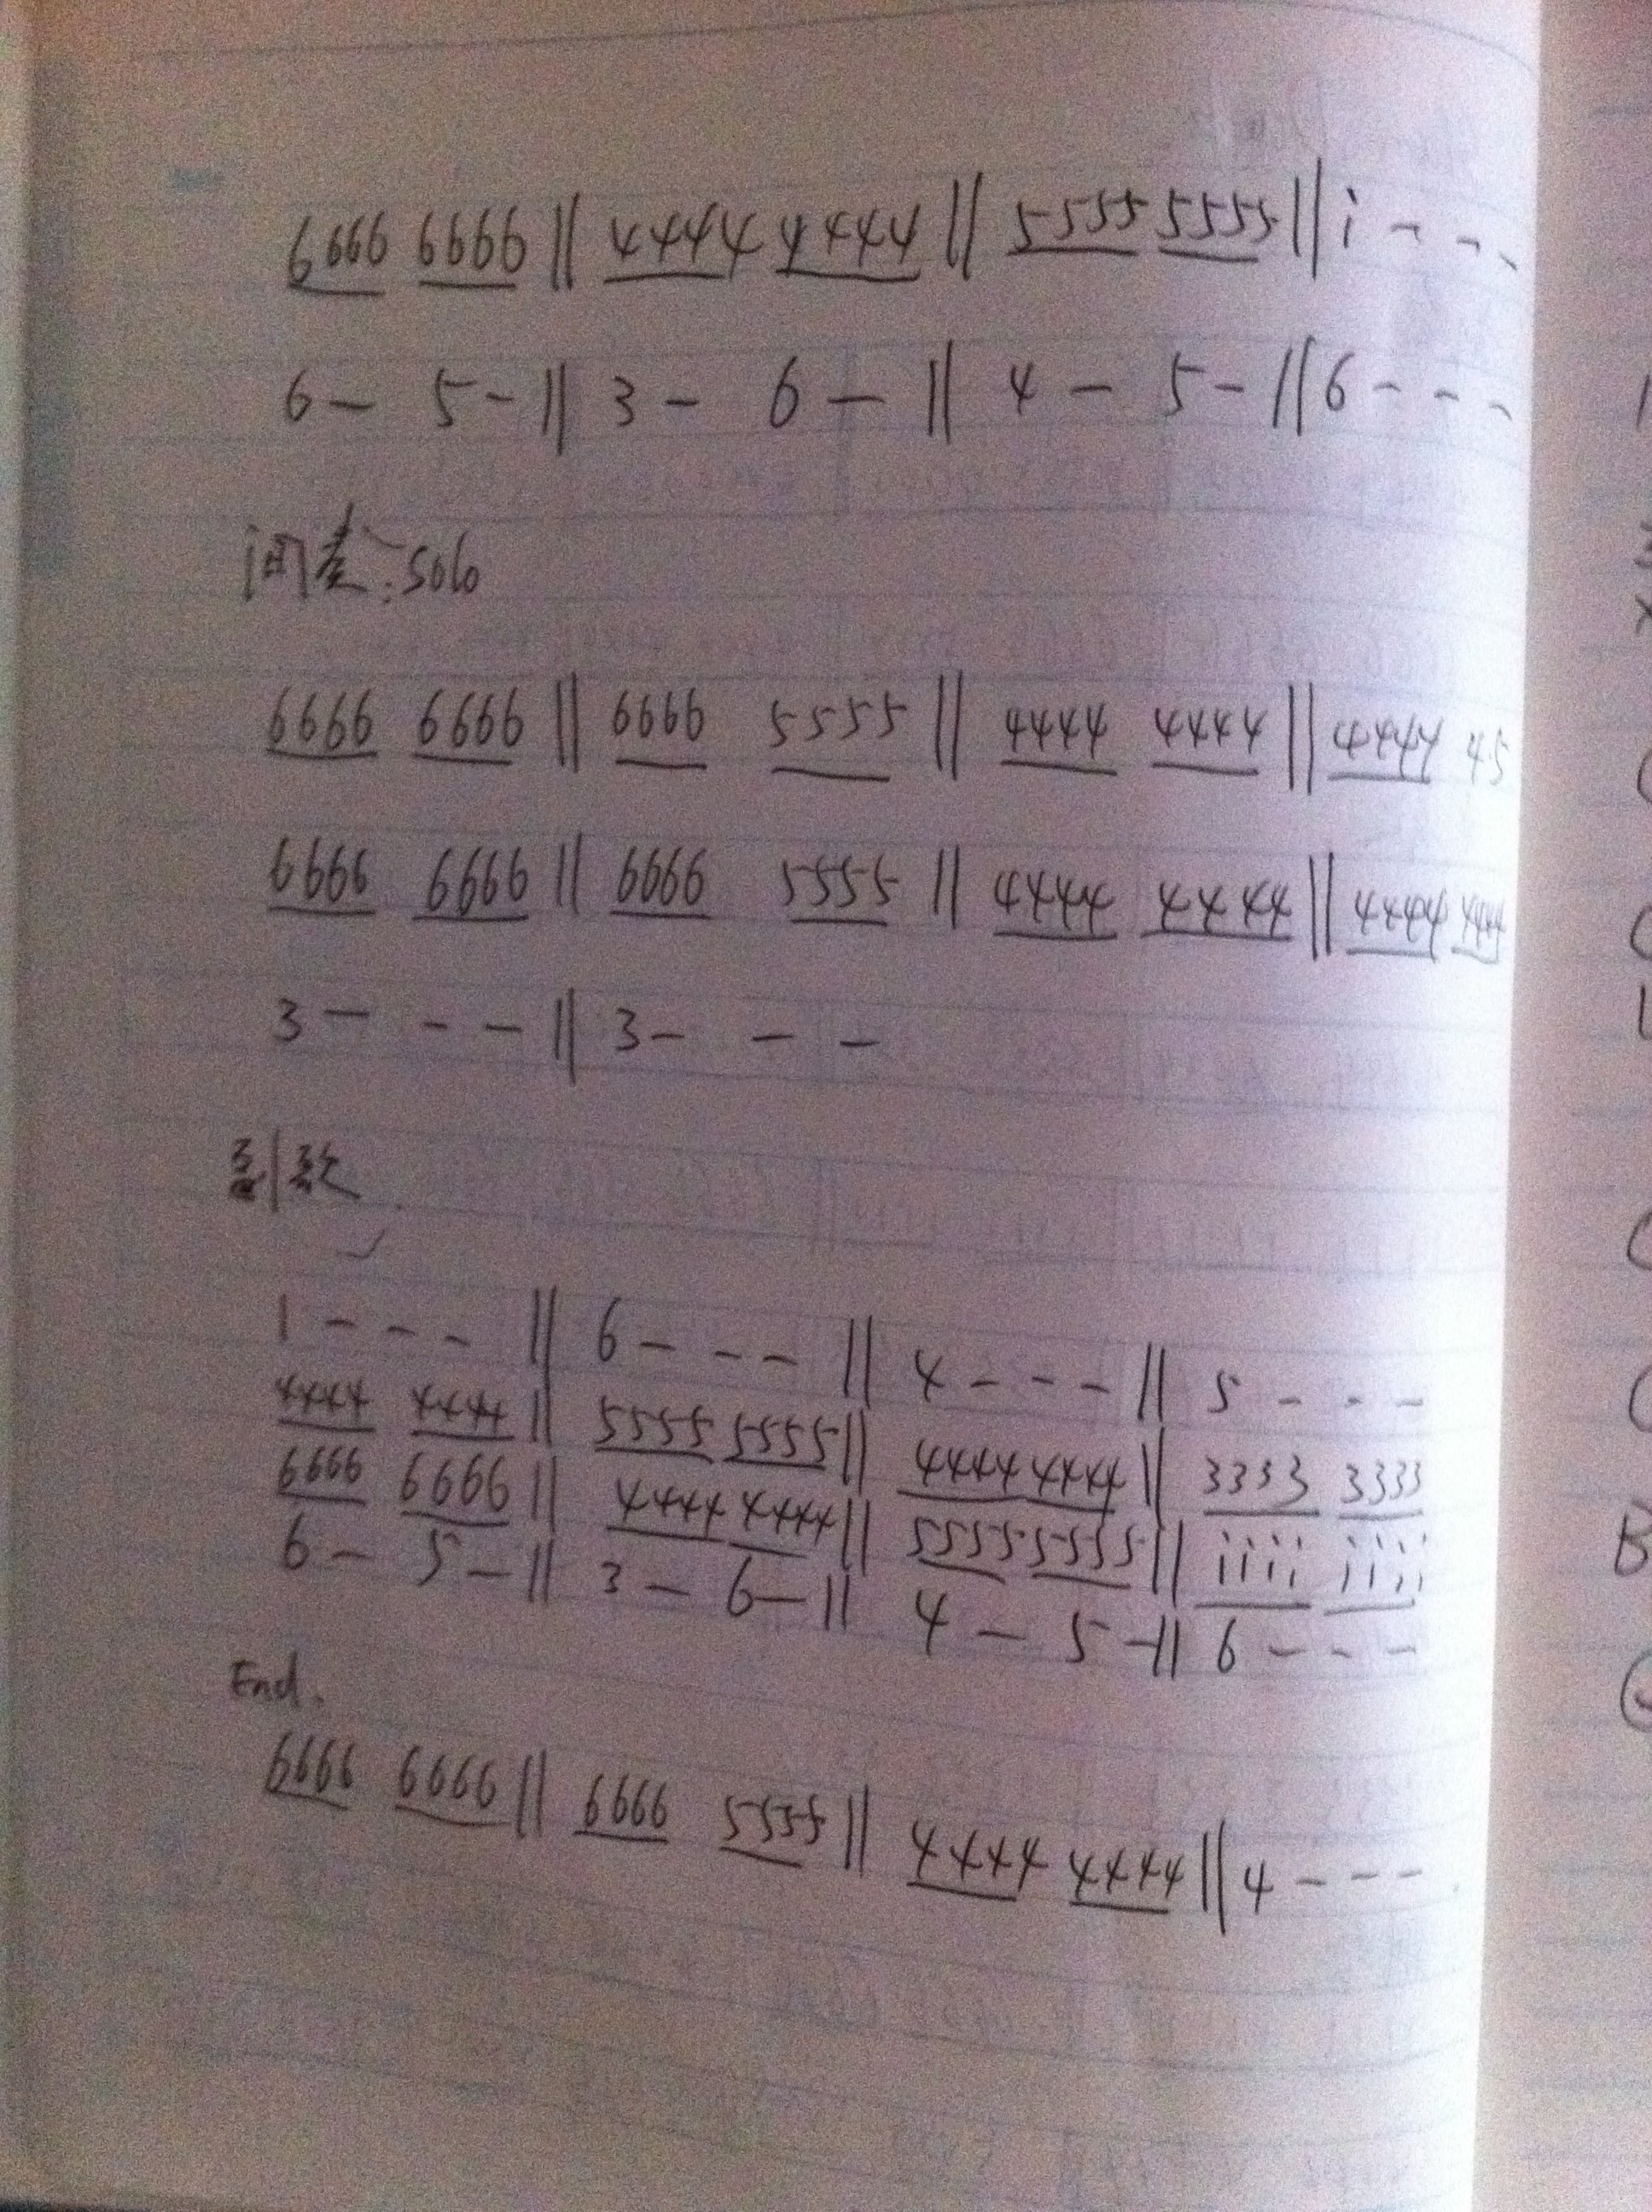 6666 6666 || 4444 4444 || 5555 5555 || i - - -
6 - 5 - || 3 - 6 - || 4 - 5 - || 6 - - -
间奏: solo
6666 6666 || 6666 5555 || 4444 4444 || 4444 45
6666 6666 || 6666 5555 || 4444 4444 || 4444 4444
3 - - - || 3 - - -
副歌
1 - - - || 6 - - - || 4 - - - || 5 - - -
4444 4444 || 5555 5555 || 4444 4444 || 3333 3333
6666 6666 || 4444 4444 || 5555 5555 || iiii iiii
6 - 5 - || 3 - 6 - || 4 - 5 - || 6 - - -
End.
6666 6666 || 6666 5555 || 4444 4444 || 4 - - -